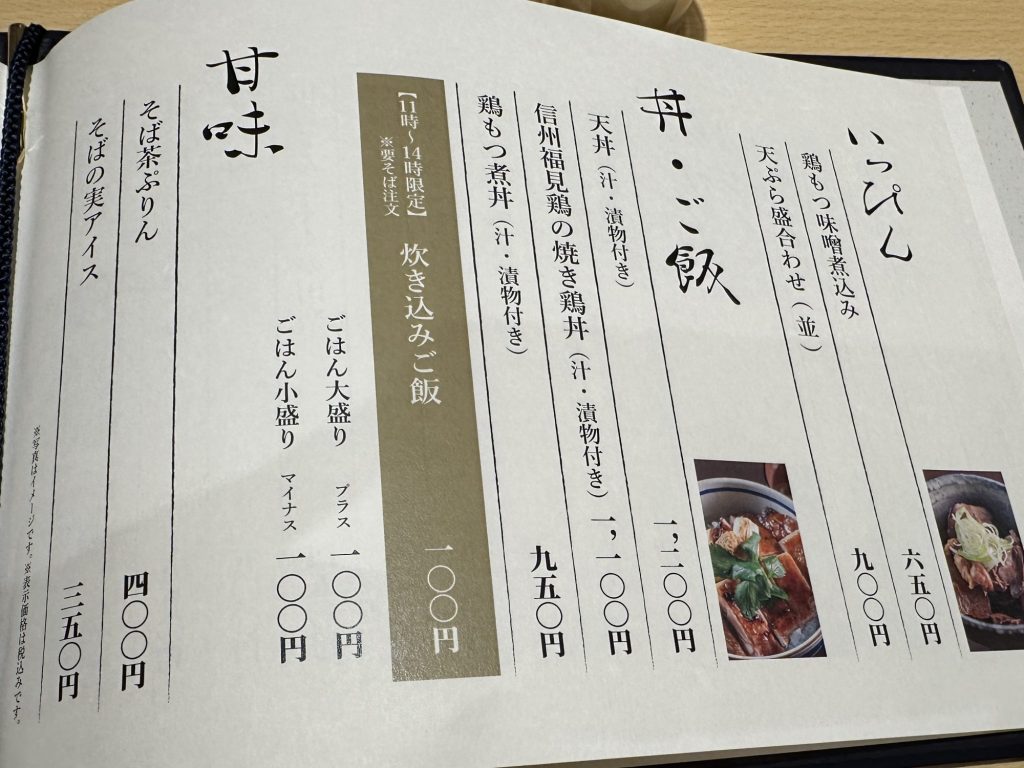 いっぴん
鶏もつ味噌煮込み 六五〇円
天ぷら盛合わせ（並） 九〇〇円
丼・ご飯
天丼（汁・漬物付き） 一,二〇〇円
信州福見鶏の焼き鶏丼（汁・漬物付き） 一,一〇〇円
鶏もつ煮丼（汁・漬物付き） 九五〇円
【11時～14時限定】
※要そば注文
炊き込みご飯 一〇〇円
ごはん大盛り プラス 一〇〇円
ごはん小盛り マイナス 一〇〇円
甘味
そば茶ぷりん 四〇〇円
そばの実アイス 三五〇円
※写真はイメージです。※表示価格は税込みです。